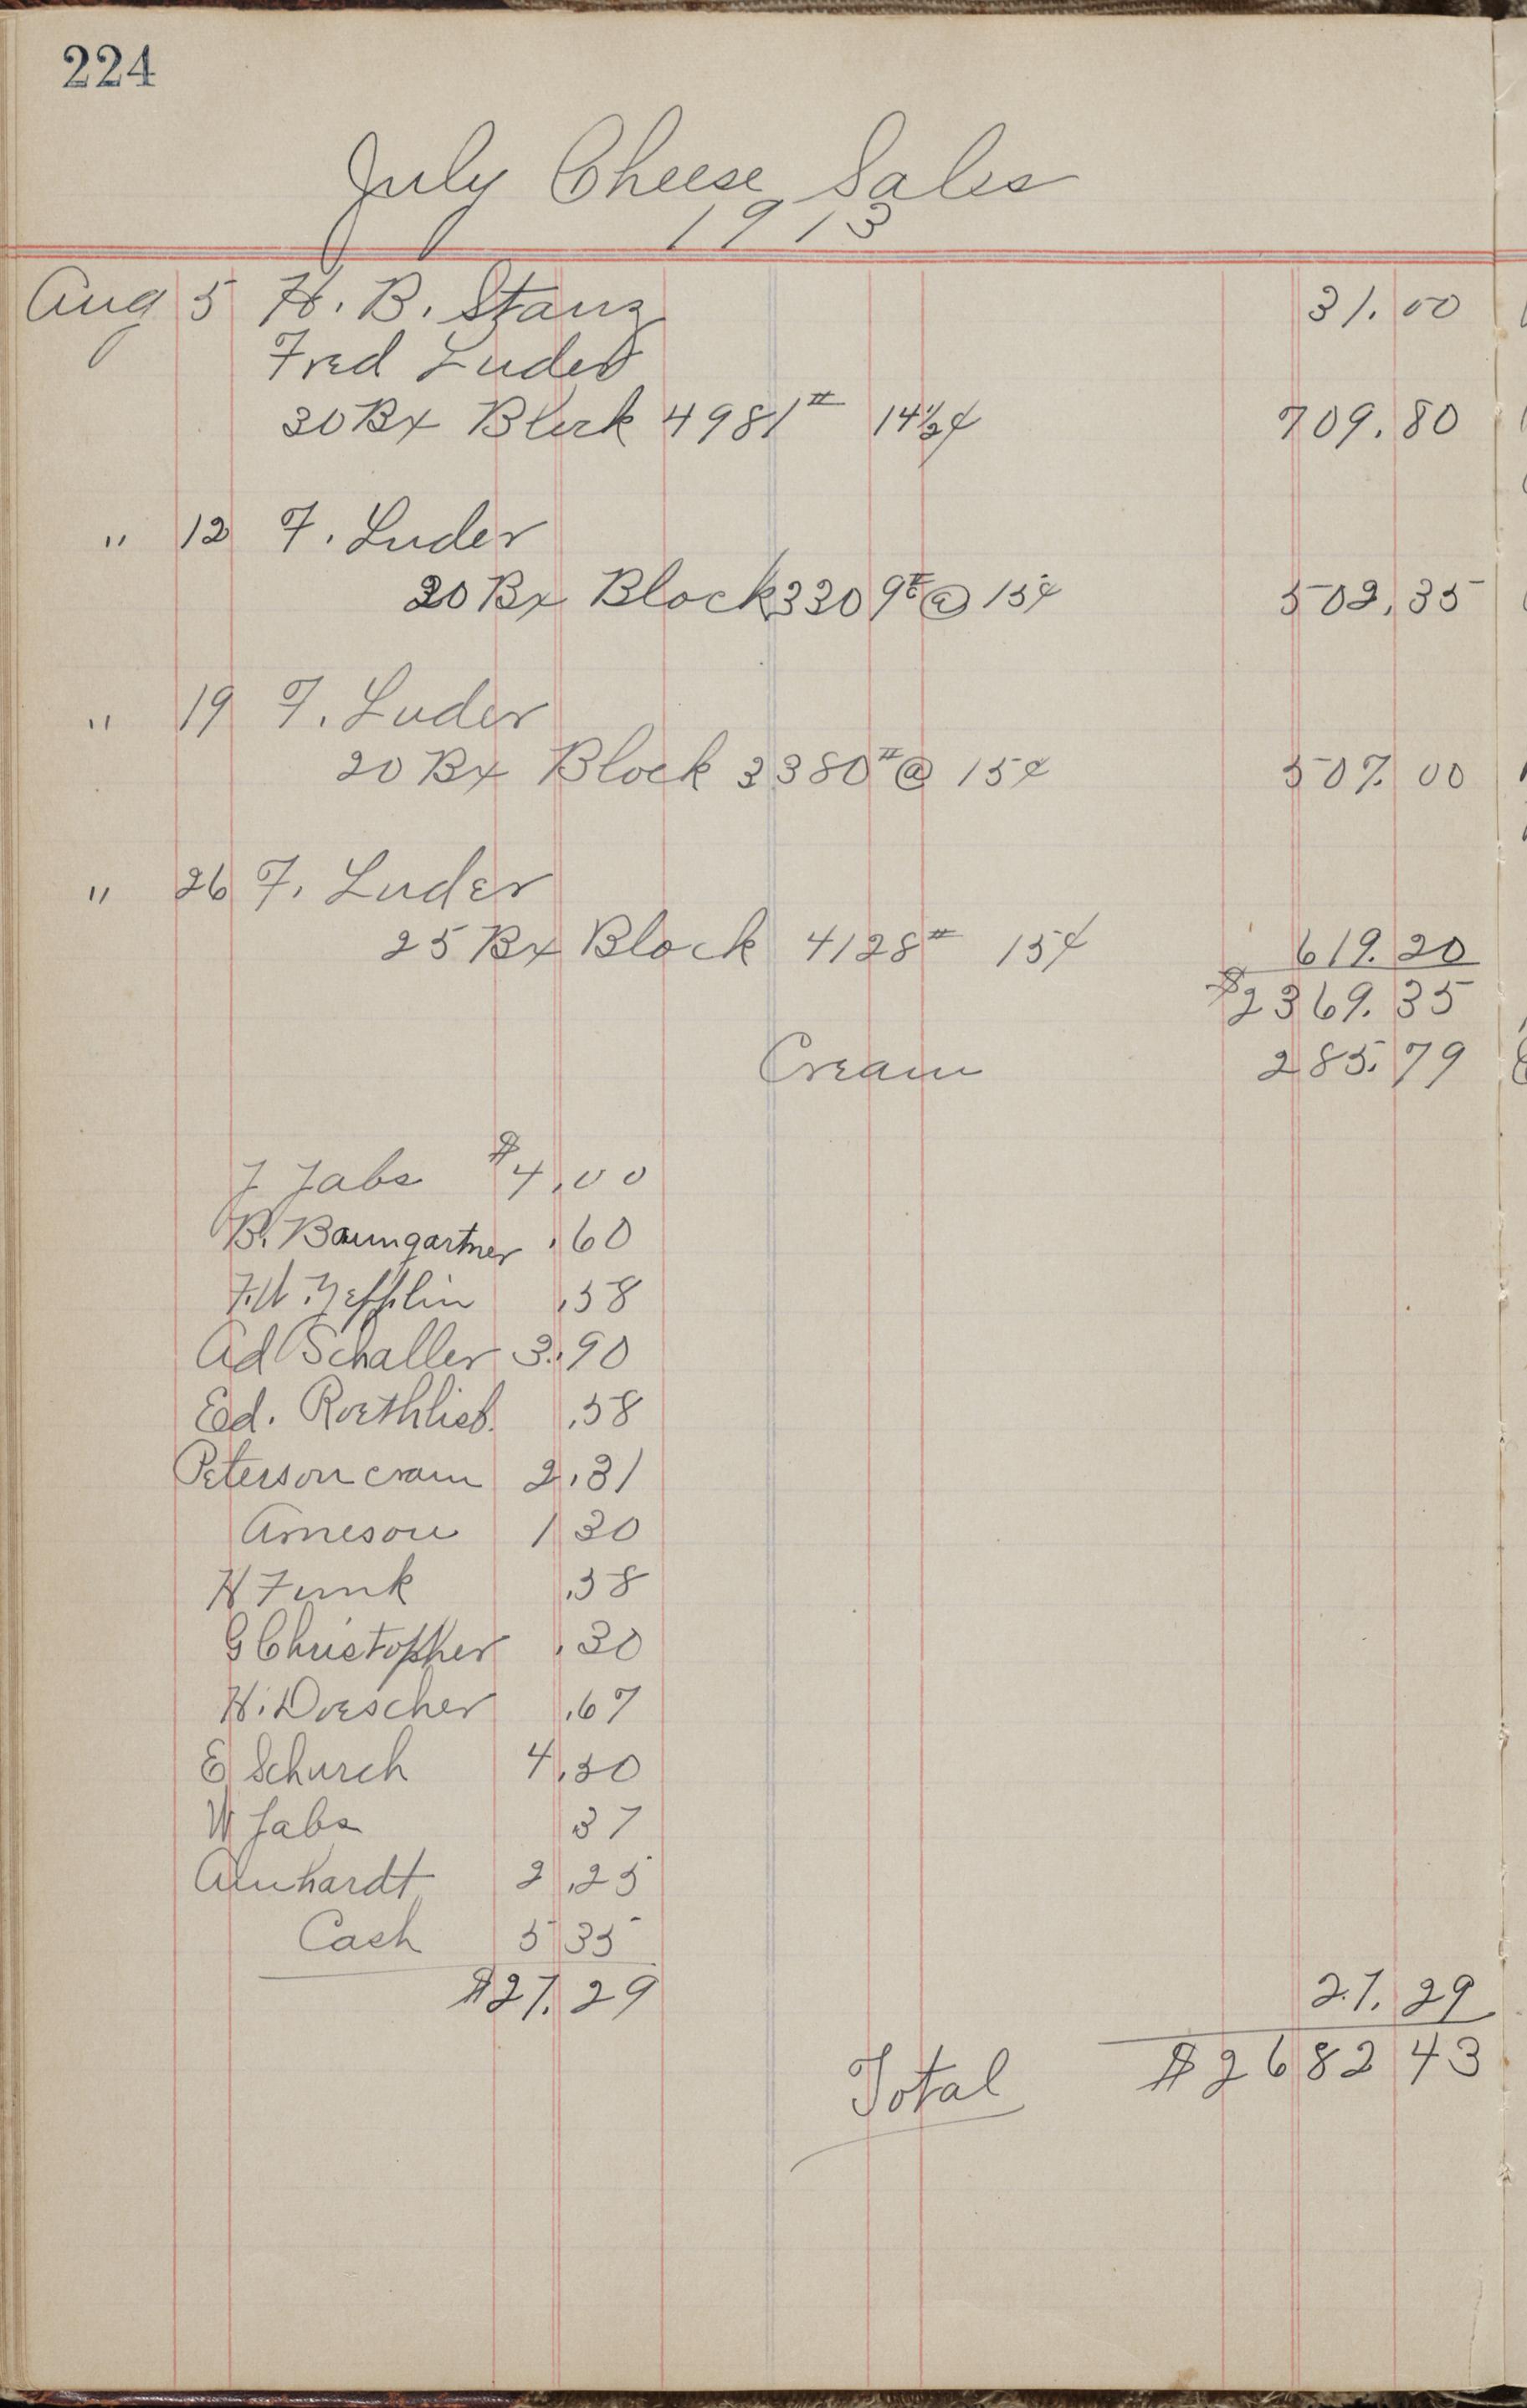 224
July Cheese Sales
1913
Aug 5 H. B. Stanz 31.00
Fred Luder
30 Bx Block 4981# 14½¢ 709.80
" 12 F. Luder
20 Bx Block 3309# @ 15¢ 502.35
" 19 F. Luder
20 Bx Block 3380# @ 15¢ 507.00
" 26 F. Luder
25 Bx Block 4128# 15¢ 619.20
$2369.35
Cream 285.79
J Jabs $4.00
B. Baumgartner .60
F.W. Zepplin .58
Ad Schaller 3.90
Ed. Roethlisb. .58
Peterson cram 2.31
Arneson 1 30
H Funk .58
G Christopher .30
H. Doescher .67
E Schurch 4.50
W Jabs 37
Amhardt 2.25
Cash 5 35
$27.29 27.29
Total $2682 43